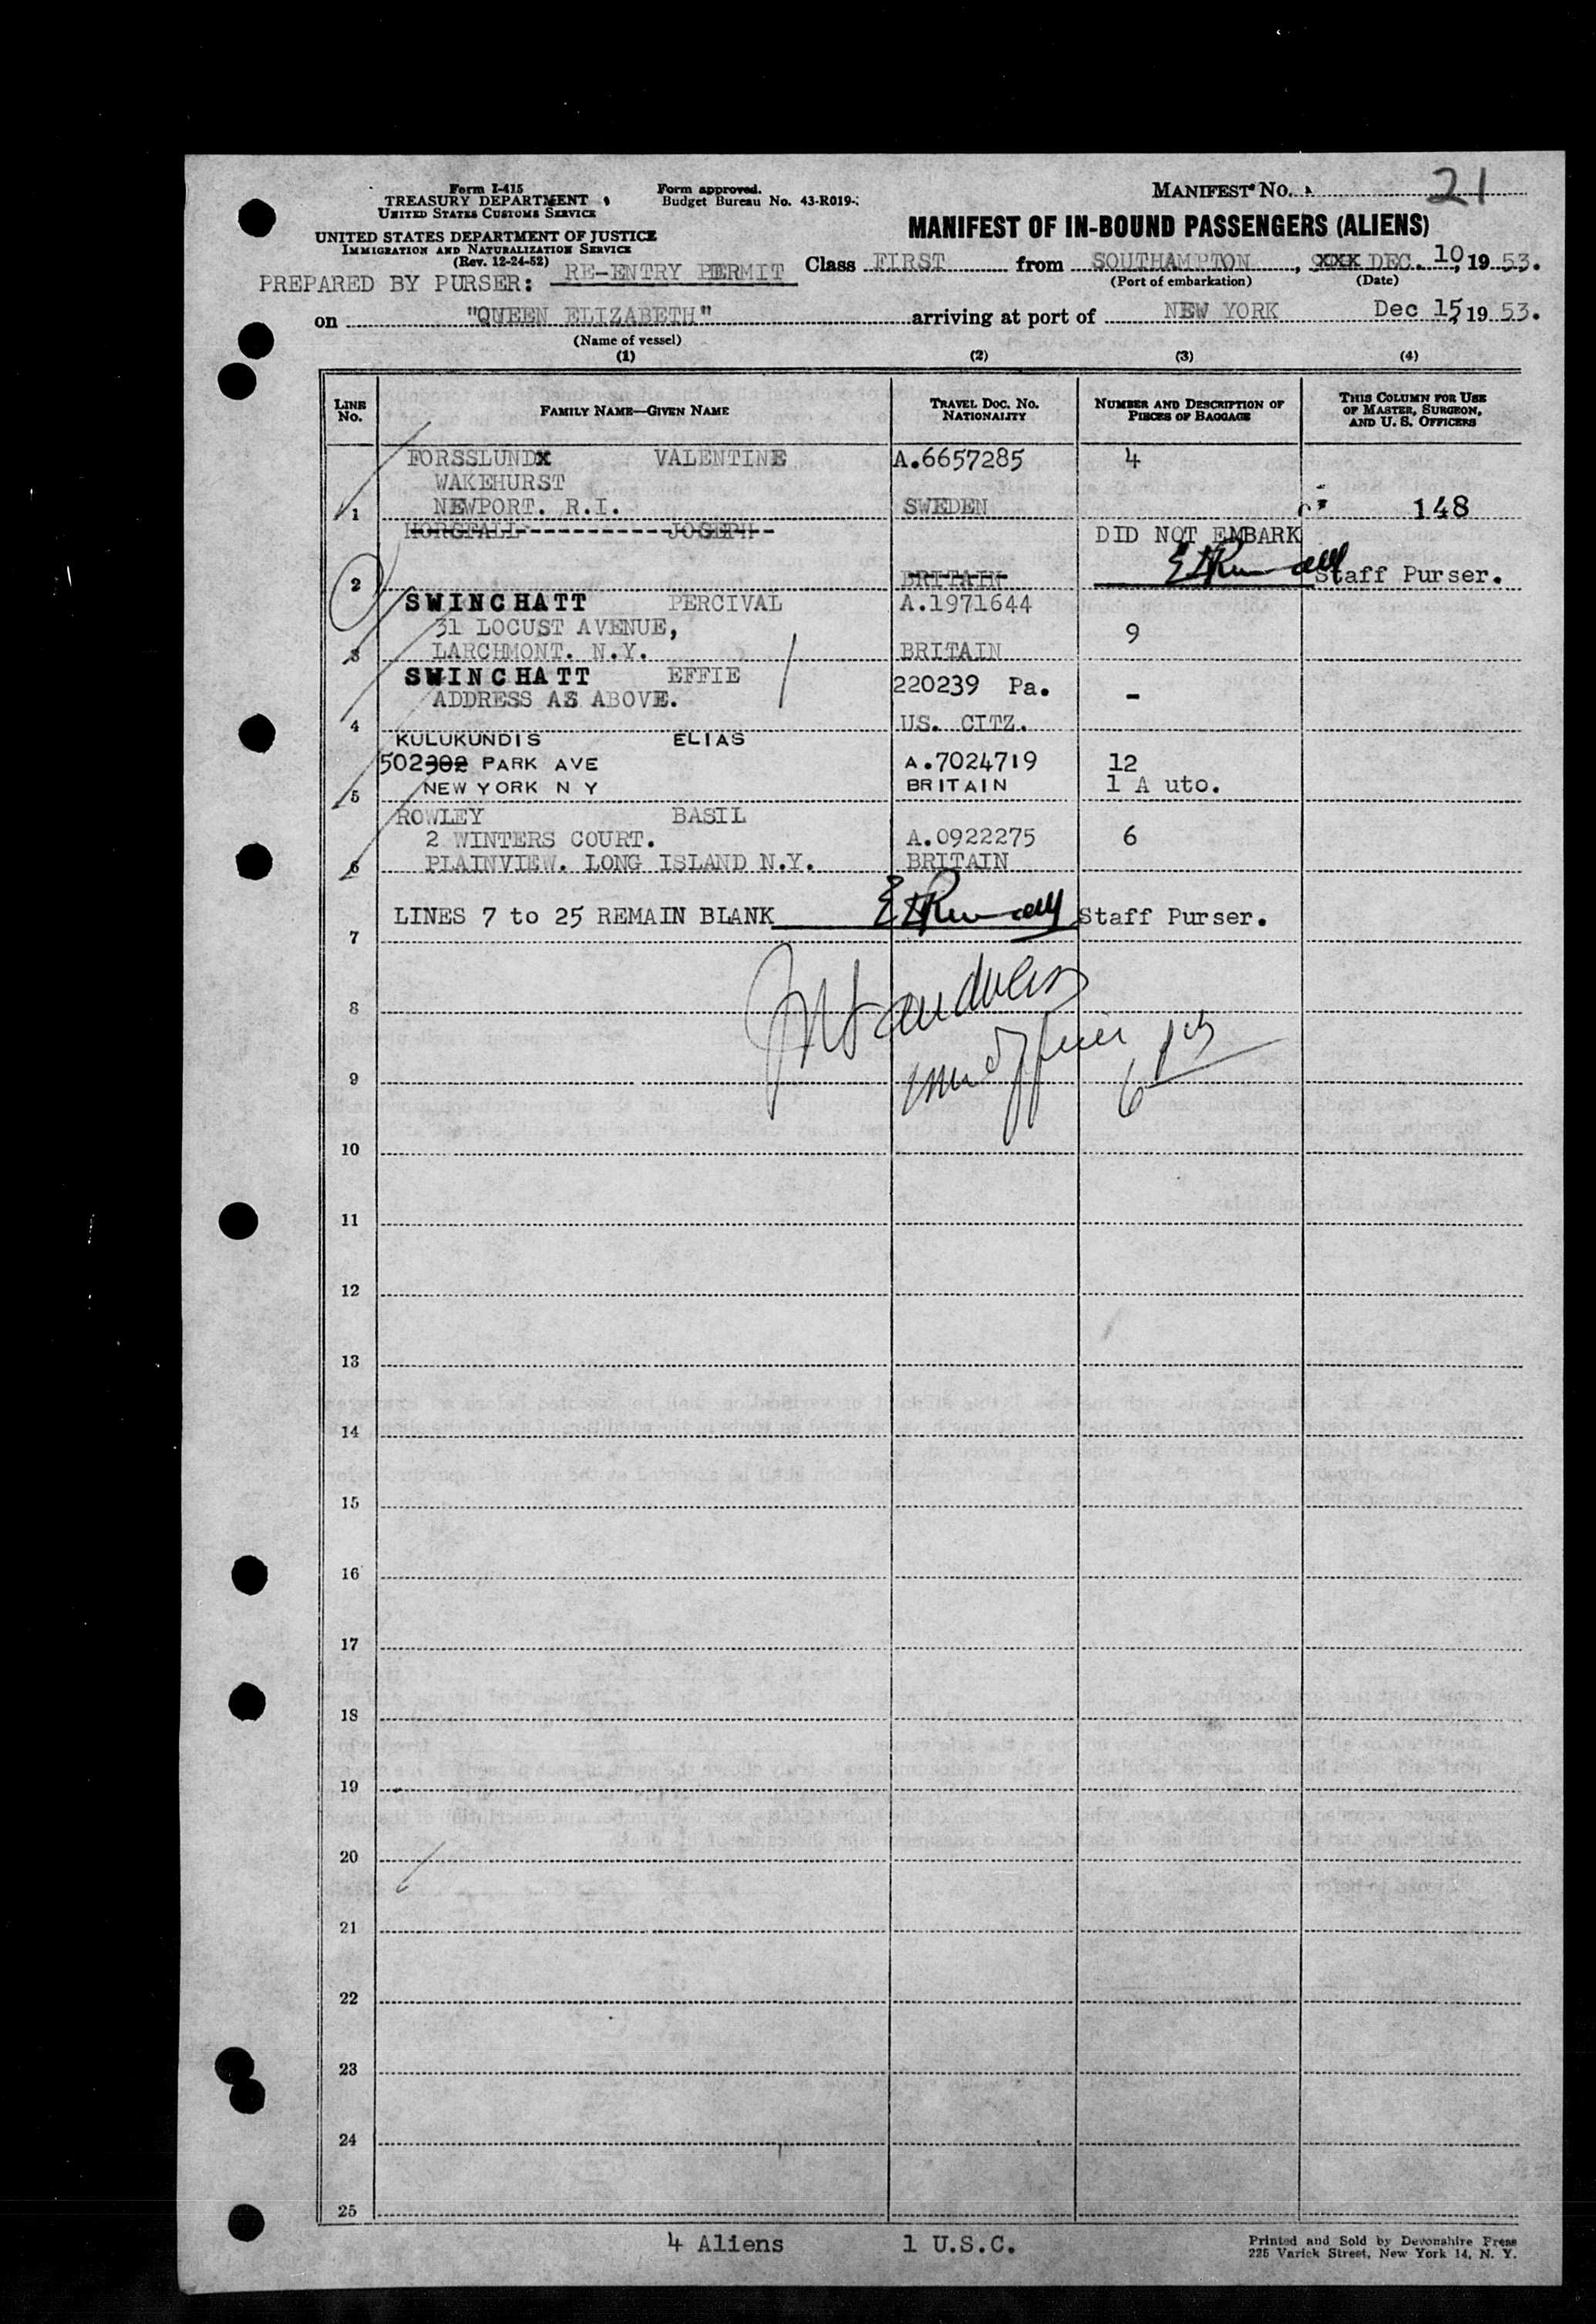 Form I-415
TREASURY DEPARTMENT
UNITED STATES CUSTOMS SERVICE
Form approved.
Budget Bureau No. 43-R019-
MANIFEST NO. 21
UNITED STATES DEPARTMENT OF JUSTICE
IMMIGRATION AND NATURALIZATION SERVICE
(Rev. 12-24-52)
MANIFEST OF IN-BOUND PASSENGERS (ALIENS)
PREPARED BY PURSER: RE-ENTRY PERMIT Class FIRST from SOUTHAMPTON, XXX DEC. 10, 19 53.
(Port of embarkation) (Date)
on "QUEEN ELIZABETH" arriving at port of NEW YORK Dec 15, 19 53.
(Name of vessel)
(1) (2) (3) (4)
LINE No. FAMILY NAME—GIVEN NAME TRAVEL DOC. NO. NATIONALITY NUMBER AND DESCRIPTION OF PIECES OF BAGGAGE THIS COLUMN FOR USE OF MASTER, SURGEON, AND U. S. OFFICERS
FORSSLUNDX VALENTINE A.6657285 4
WAKEHURST
1 NEWPORT. R.I. SWEDEN 148
HORSFALL----------JOSEPH- DID NOT EMBARK
2 BRITAIN Staff Purser.
SWINCHATT PERCIVAL A.1971644
31 LOCUST AVENUE, 9
3 LARCHMONT. N.Y. BRITAIN
SWINCHATT EFFIE 220239 Pa. -
ADDRESS AS ABOVE.
4 US. CITZ.
KULUKUNDIS ELIAS
502 302 PARK AVE A.7024719 12
5 NEW YORK N Y BRITAIN 1 A uto.
ROWLEY BASIL
2 WINTERS COURT. A.0922275 6
6 PLAINVIEW. LONG ISLAND N.Y. BRITAIN
LINES 7 to 25 REMAIN BLANK Staff Purser.
7
8
9
10
11
12
13
14
15
16
17
18
19
20
21
22
23
24
25
4 Aliens 1 U.S.C.
Printed and Sold by Devonshire Press
225 Varick Street, New York 14, N. Y.